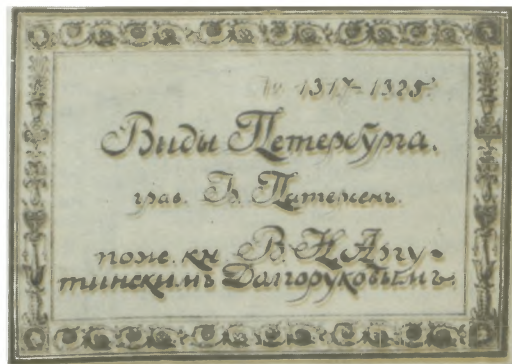 № 1317-1325
Виды Петербурга.
грав. Б. Патерсенъ.
пожс. кн. В. Н. Аргу-
тинскимъ Долгоруковымъ.